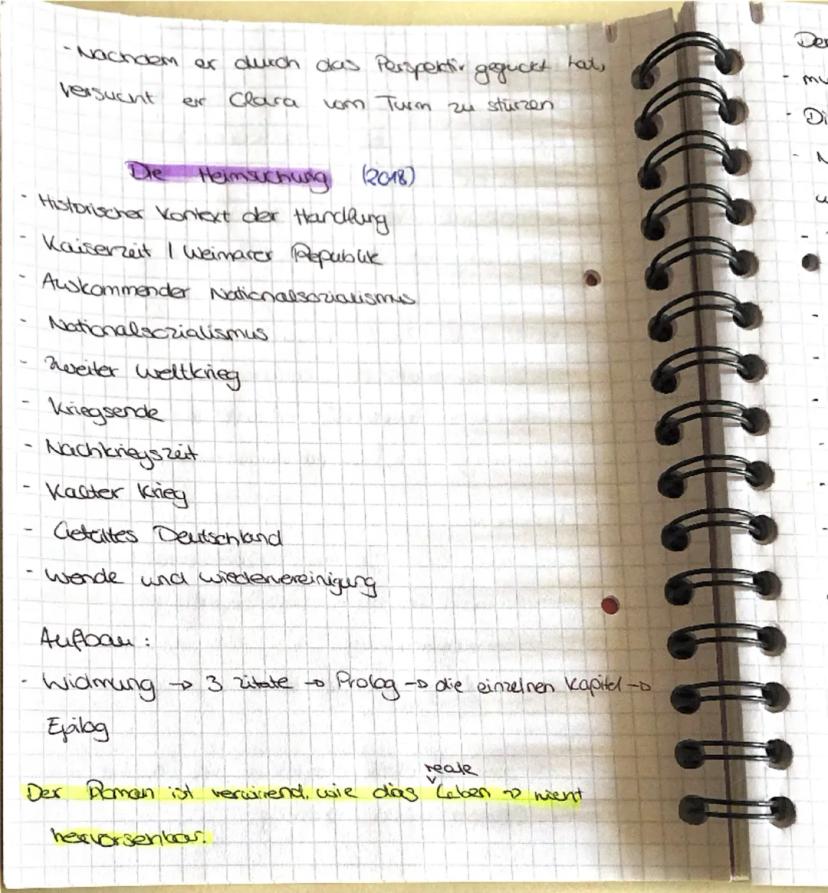 - Nachdem er durch das Perspektiv geguckt hat,
versucht er Clara vom Turm zu stürzen
Die Heimsuchung (2018)
- Historischer Kontext der Handlung
- Kaiserzeit / Weimarer Republik
- Aufkommender Nationalsozialismus
- Nationalsozialismus
- Zweiter Weltkrieg
- Kriegsende
- Nachkriegszeit
- Kalter Krieg
- Geteiltes Deutschland
- Wende und Wiedervereinigung
Aufbau:
- Widmung → 3 Zitate → Prolog → die einzelnen Kapitel →
Epilog
reale
Der Roman ist verwirrend, wie das Leben → nicht
hervorsehbar.
Der
- mu
- Di